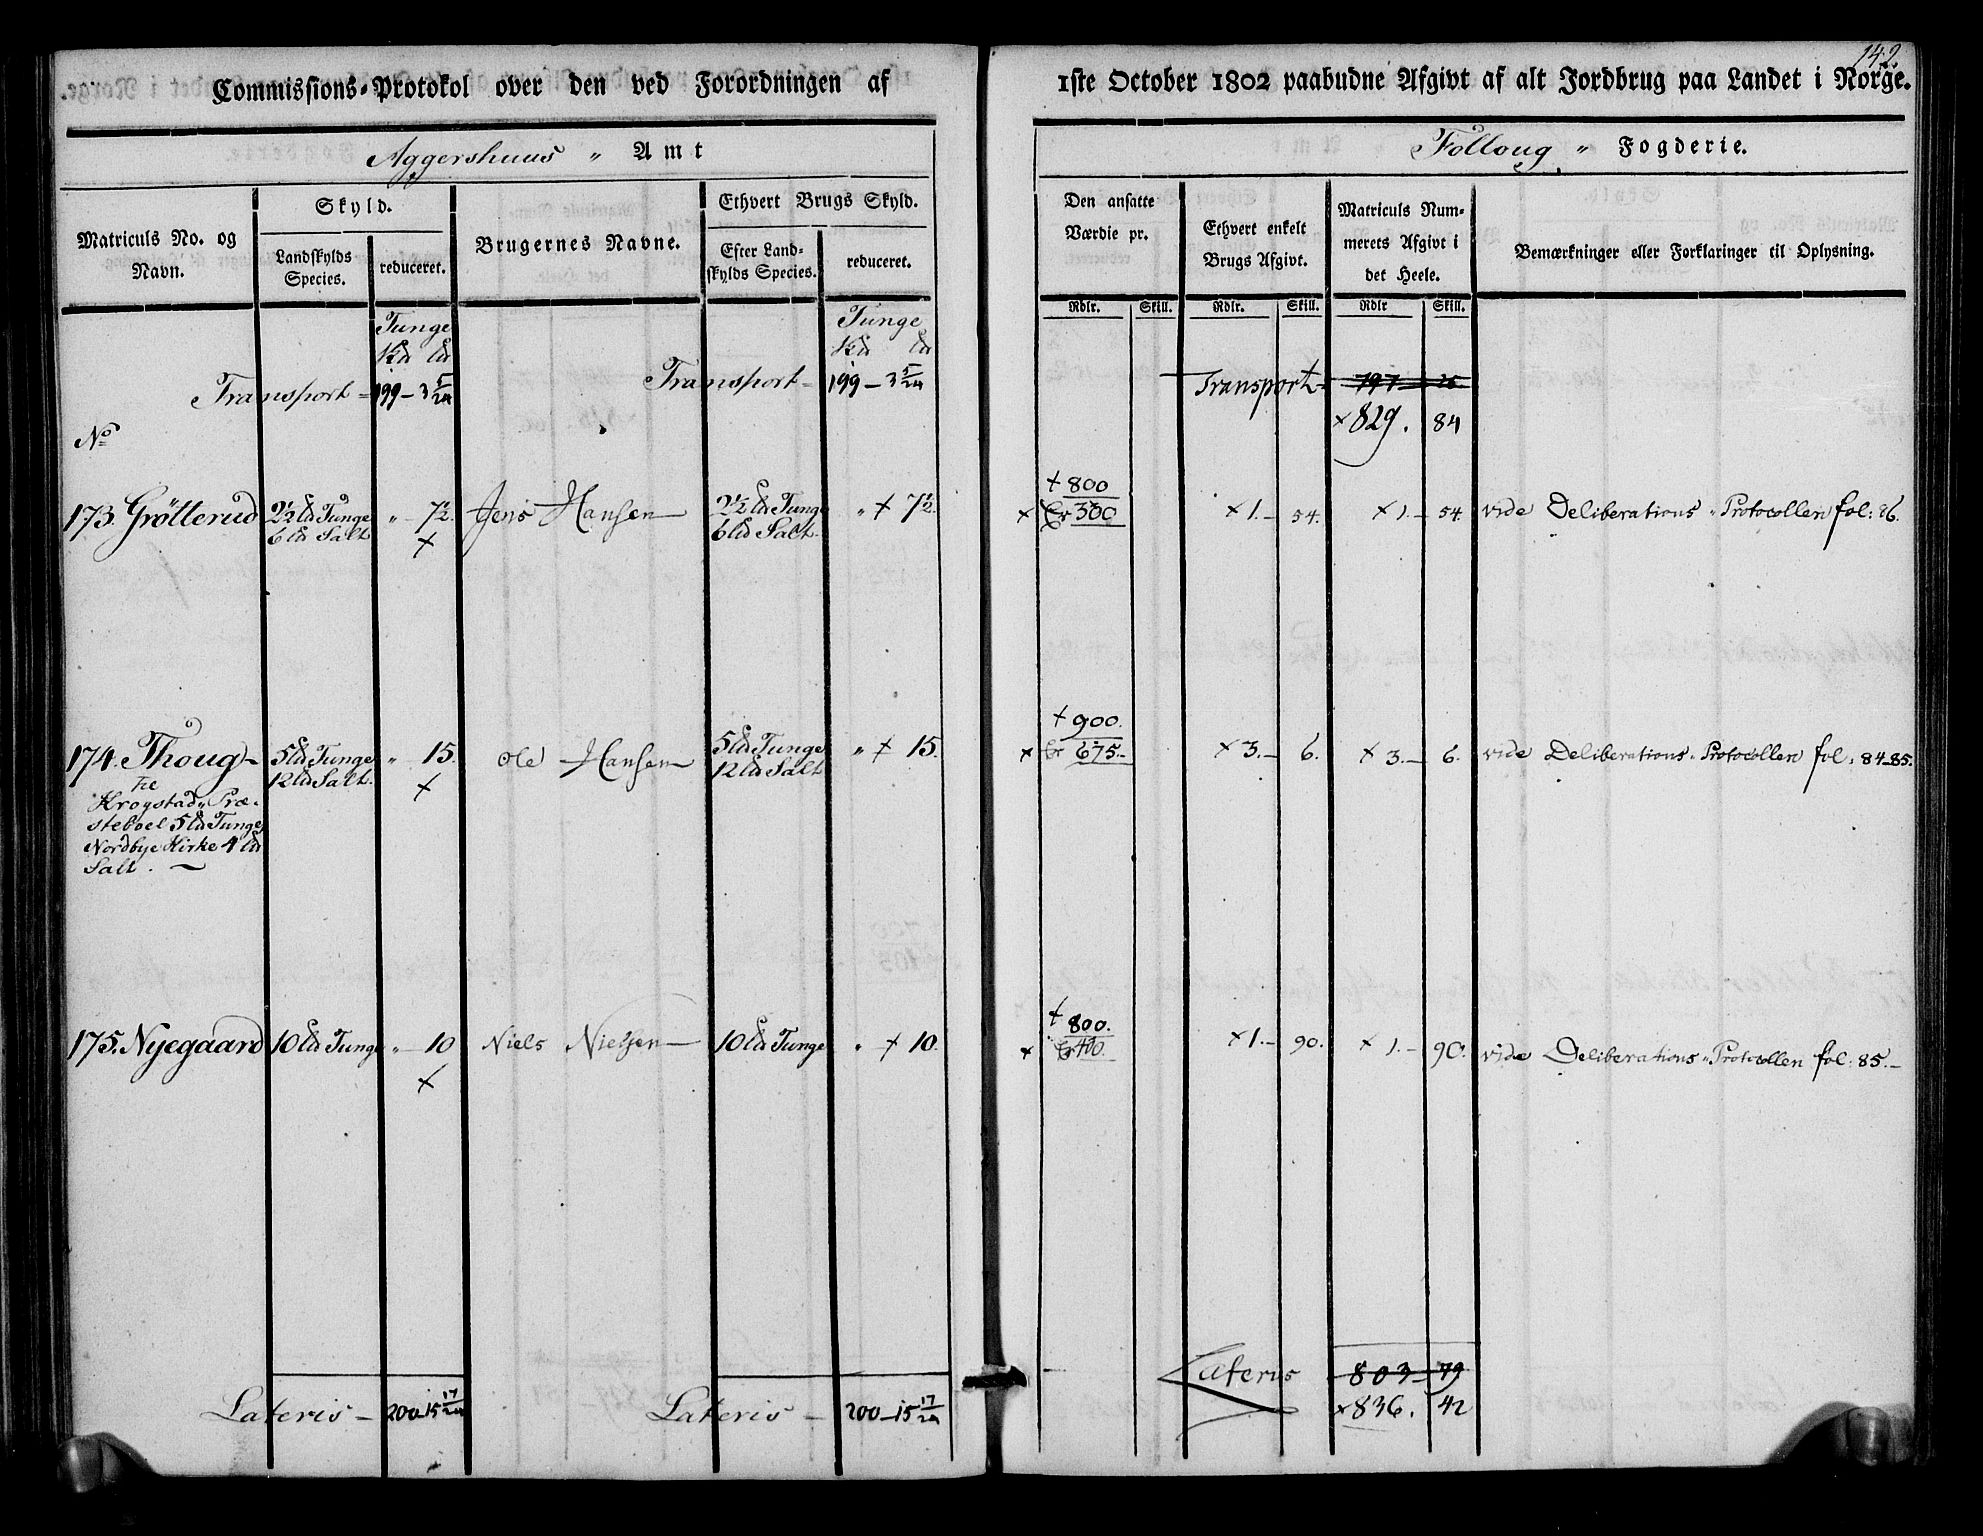 142.
Commissions-Protokol over den ved Forordningen af
1ste October 1802 paabudne Afgivt af alt Jordbrug paa Landet i Norge.
Aggershuus " Amt
Folloug " Fogderie.
Matriculs No. og Navn.
Skyld.
Landskylds Species.
reduceret.
Brugernes Navne.
Ethvert Brugs Skyld.
Efter Landskylds Species.
reduceret.
Den ansatte Værdie pr.
Ethvert enkelt Brugs Afgivt.
Matriculs Nummerets Afgivt i det Heele.
Bemærkninger eller Forklaringer til Oplysning.
Rdlr. Skill. Rdlr. Skill. Rdlr Skill.
Tunge Tunge
Transport - 199 - 3 5/24 Transport - 199 - 3 5/24 Transport - 797 - 25
× 829. 84
No
173. Grötterud 2½ Ld Tunge " 7½. Jens Hansen 2½ Ld Tunge " × 7½ + 800 × 1. - 54. × 1. - 54. vide Deliberations " Protocollen fol: 86.
6 Ld Salt × 6 Ld Salt × Er 300
174. Thoug - 5 Ld Tunge " 15. Ole Hansen 5 Ld Tunge " × 15. + 900. × 3. - 6. × 3. - 6. vide Deliberations " Protocollen fol: 84-85.
12 Ld Salt. × 12 Ld Salt × Er 675. -
Krogstad " Præ-
steboel 5 Ld Tunge
Nordbye Kirke 4 Ld
Salt. -
175. Nyegaard 10 Ld Tunge " 10 Niels Nielsen 10 Ld Tunge " × 10. + 800. × 1. - 90. × 1. - 90. vide Deliberations " Protocollen fol: 85. -
× × Er 400.
Lateris - 200 - 15 17/24 Lateris - 200 - 15 17/24 Lateris 803 - 79
× 836. 42